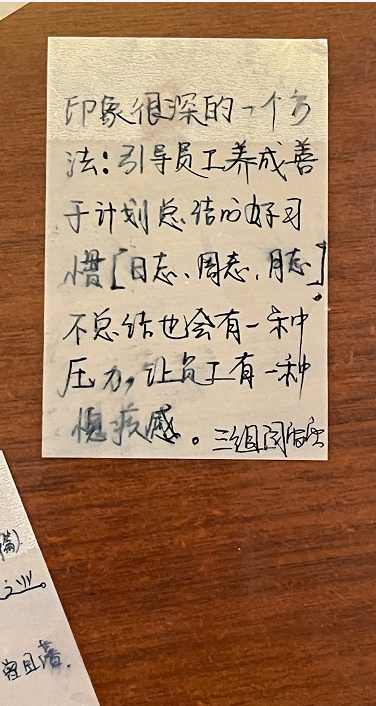 印象很深的一个方
法:引导员工养成善
于计划总结的好习
惯[日志、周志、月志]
不总结也会有一种
压力,让员工有一种
愧疚感。三组
篇)